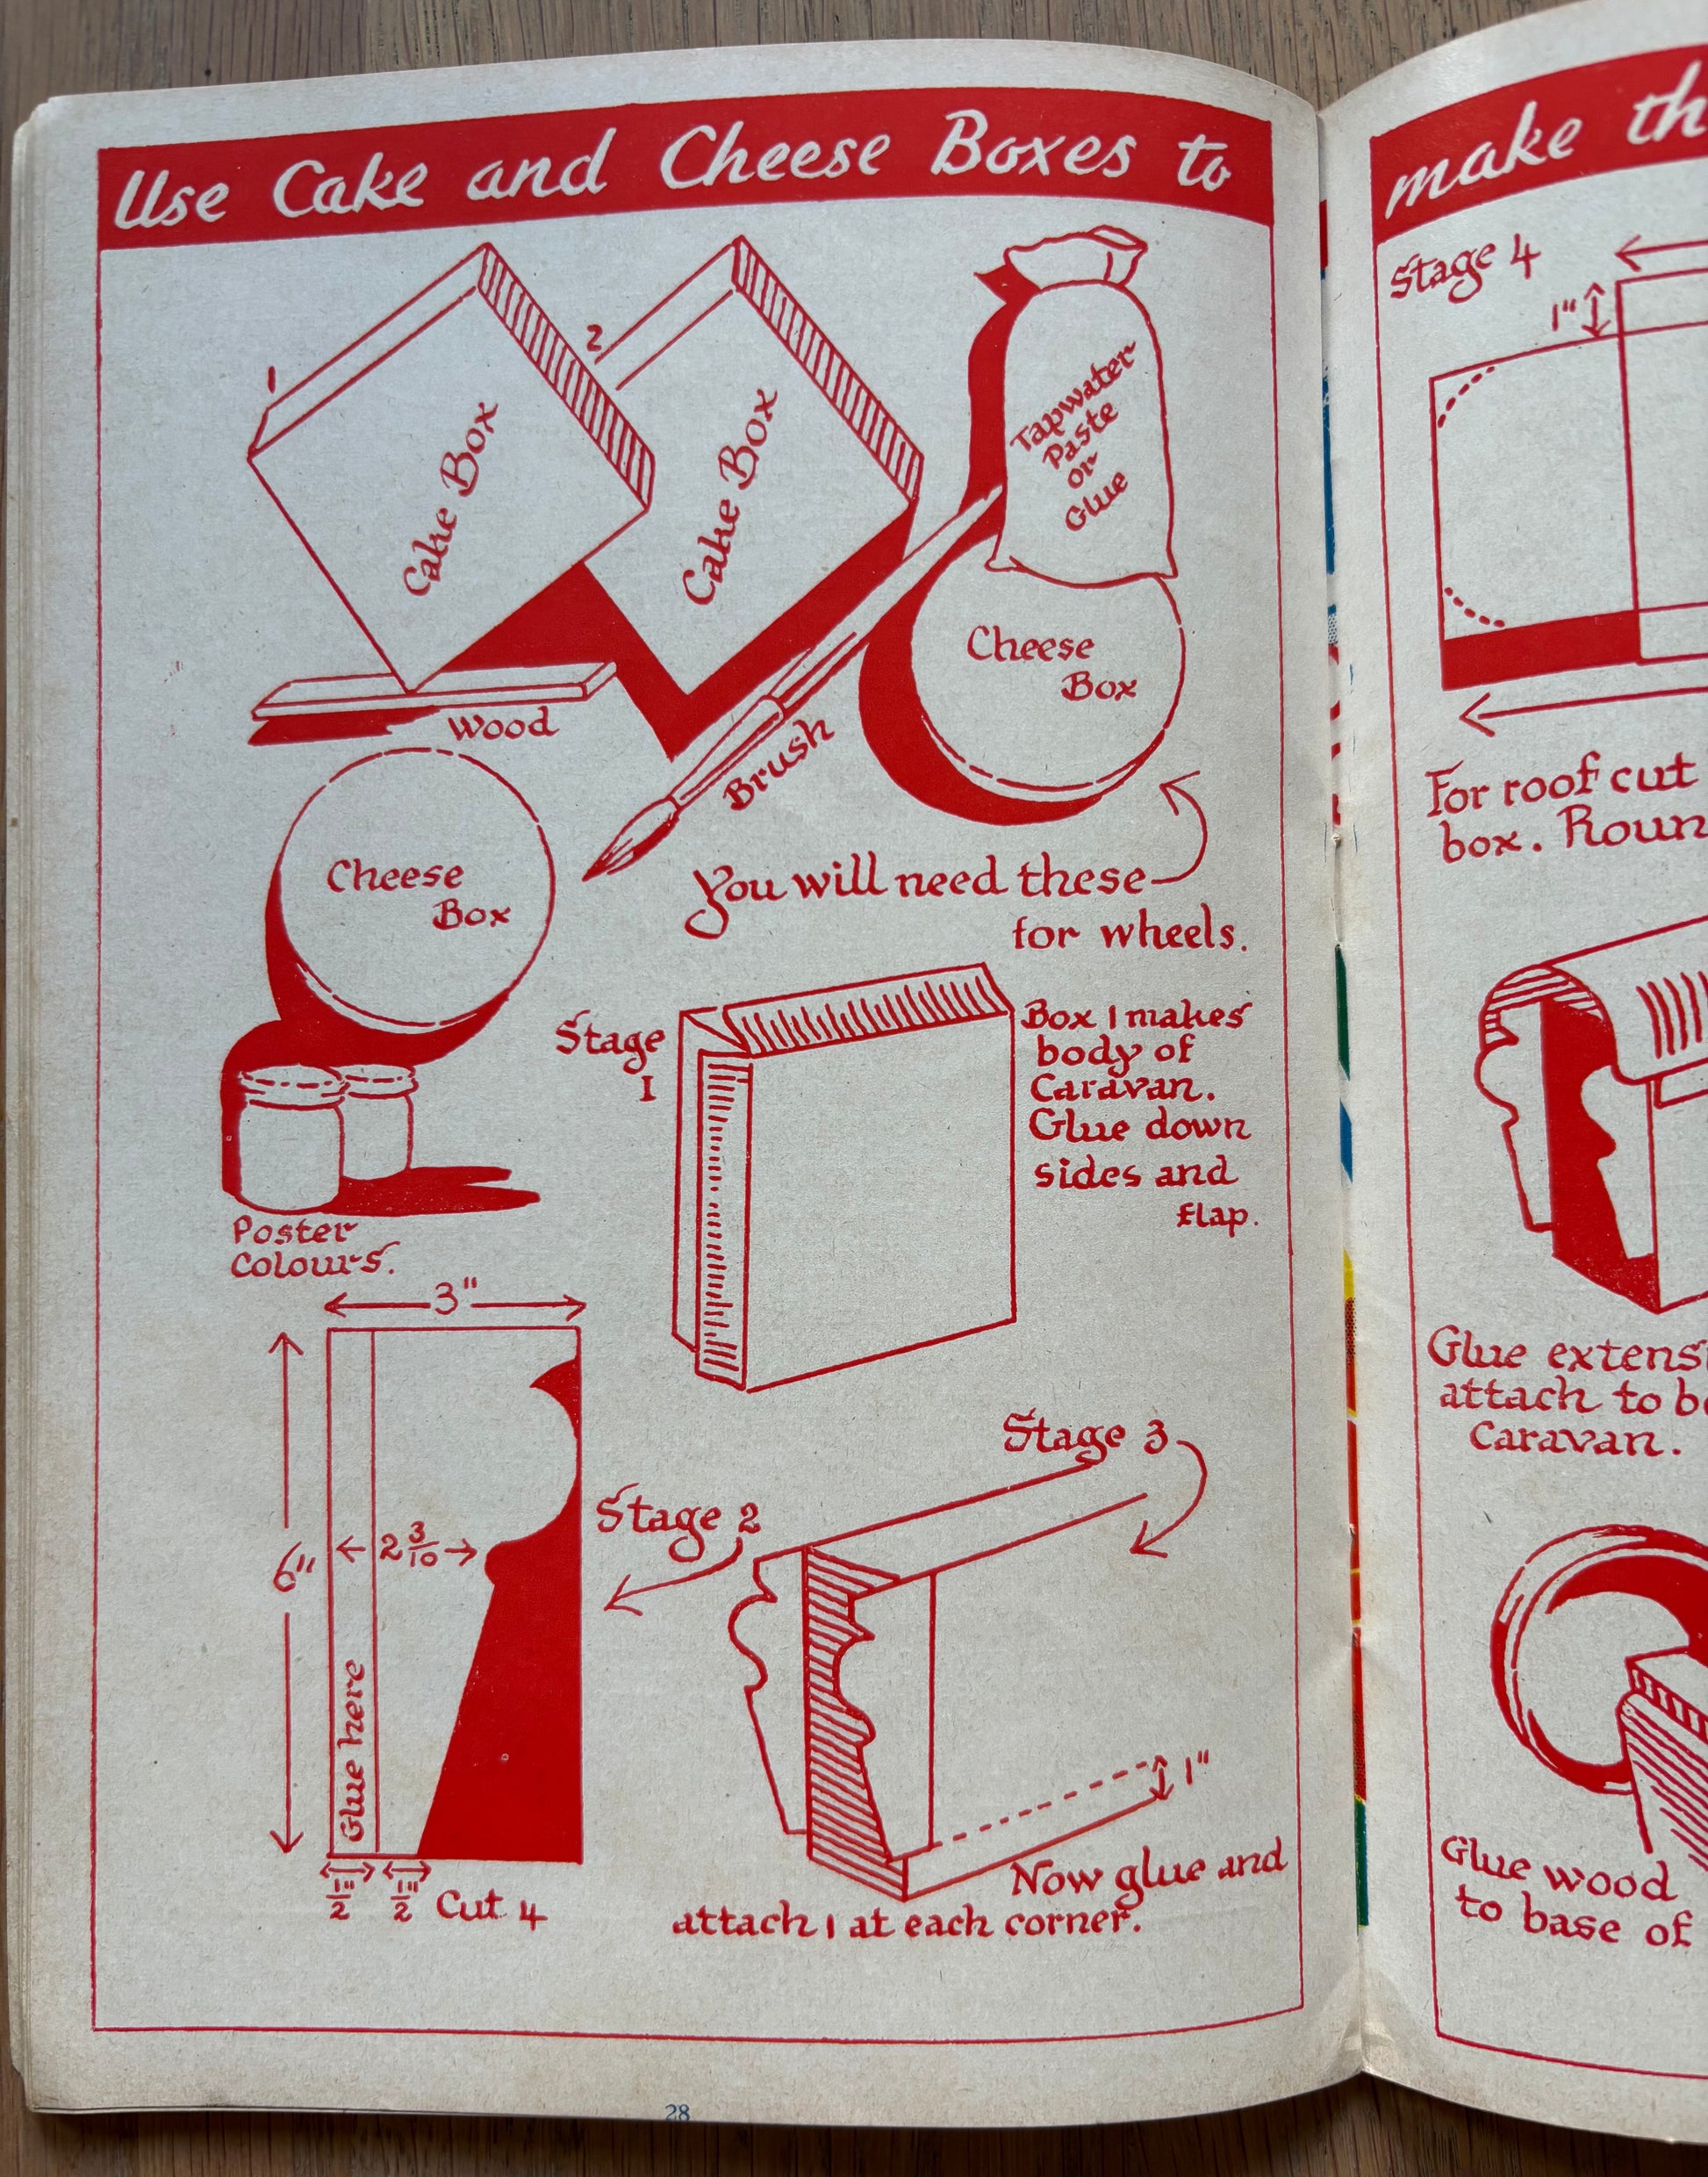 Use Cake and Cheese Boxes to
1
Cake Box
2
Cake Box
Tapwater
Paste
or
Glue
Wood
Brush
Cheese
Box
Cheese
Box
You will need these
for wheels.
Poster
Colours.
Stage
1
Box 1 makes
body of
Caravan.
Glue down
sides and
flap.
3"
6"
2 3/10
Glue here
1/2" 1/2" Cut 4
Stage 2
Stage 3
1"
Now glue and
attach 1 at each corner.
28
make
Stage 4
1"
For roof cut
box.
Glue
attach to
Caravan.
Glue wood
to base of